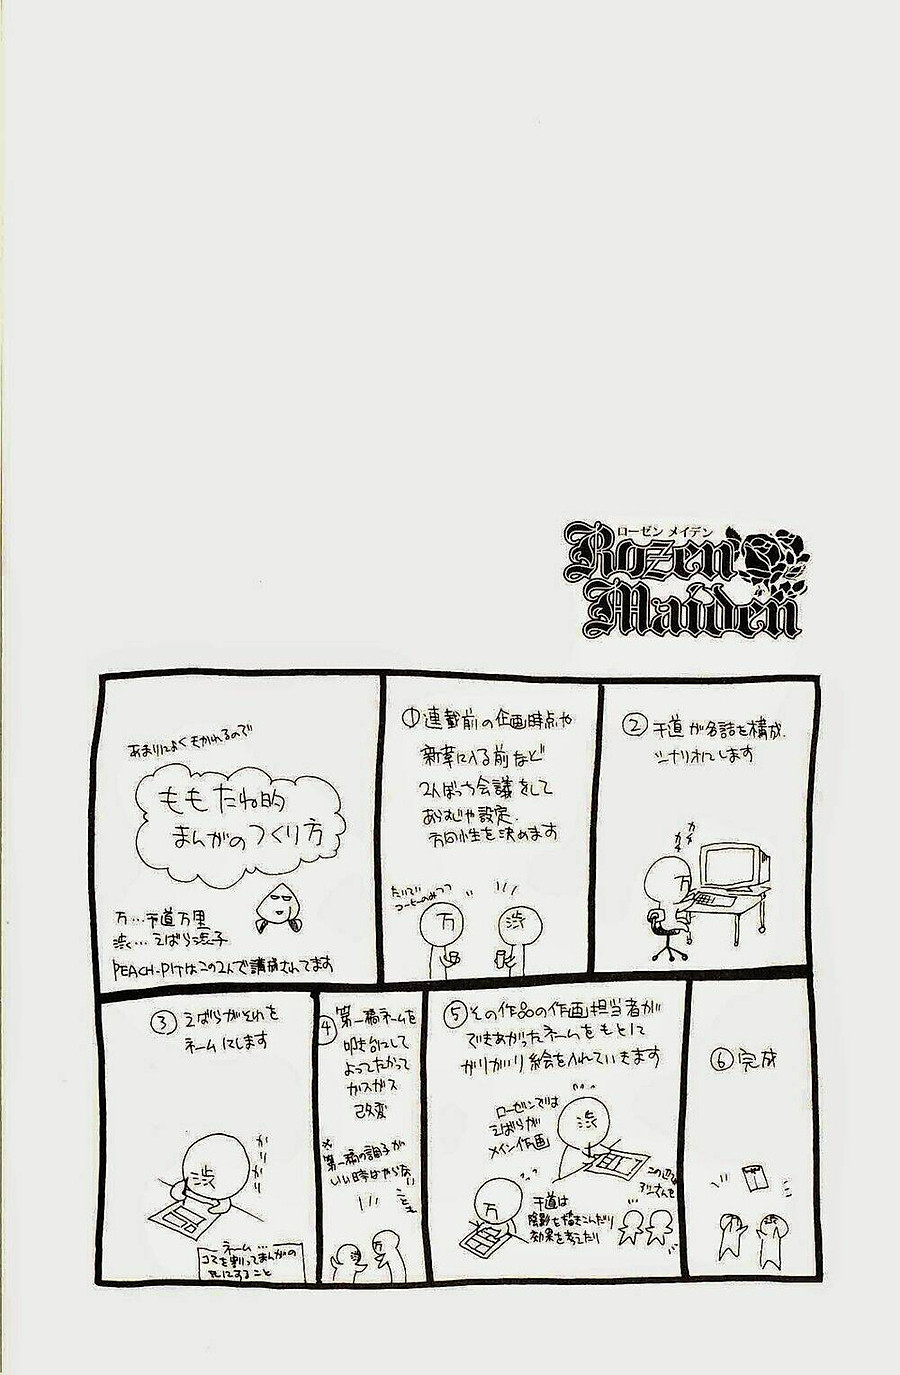 ローゼン メイデン
Rozen
Maiden
あまりによくきかれるので
ももたね的
まんがのつくり方
万…千道万里
渋…えばら渋子
PEACH-PITはこの2人で講成されてます
①連載前の企画時点や
新章に入る前など
2人ぼっち会議をして
あらすじや設定、
方向性を決めます
たいてい
コーヒーのみつつ
万
渋
②千道が各話を構成、
シナリオにします
カタ
カタ
万
③えばらがそれを
ネームにします
かりかり
渋
ネーム…
コマを割ってまんがの
元にすること
④第一稿ネームを
叩き台にして
よってたかって
ガスガス
改変
※
第一稿の調子が
いい時はやらない
こともある
渋
万
⑤その作品の作画担当者が
できあがったネームをもとにて
がりがり絵を入れていきます
ローゼンでは
えばらが
メイン作画
渋
この辺に
アシさんも
千道は
陰影を描きこんだり
効果を考えたり
万
⑥完成